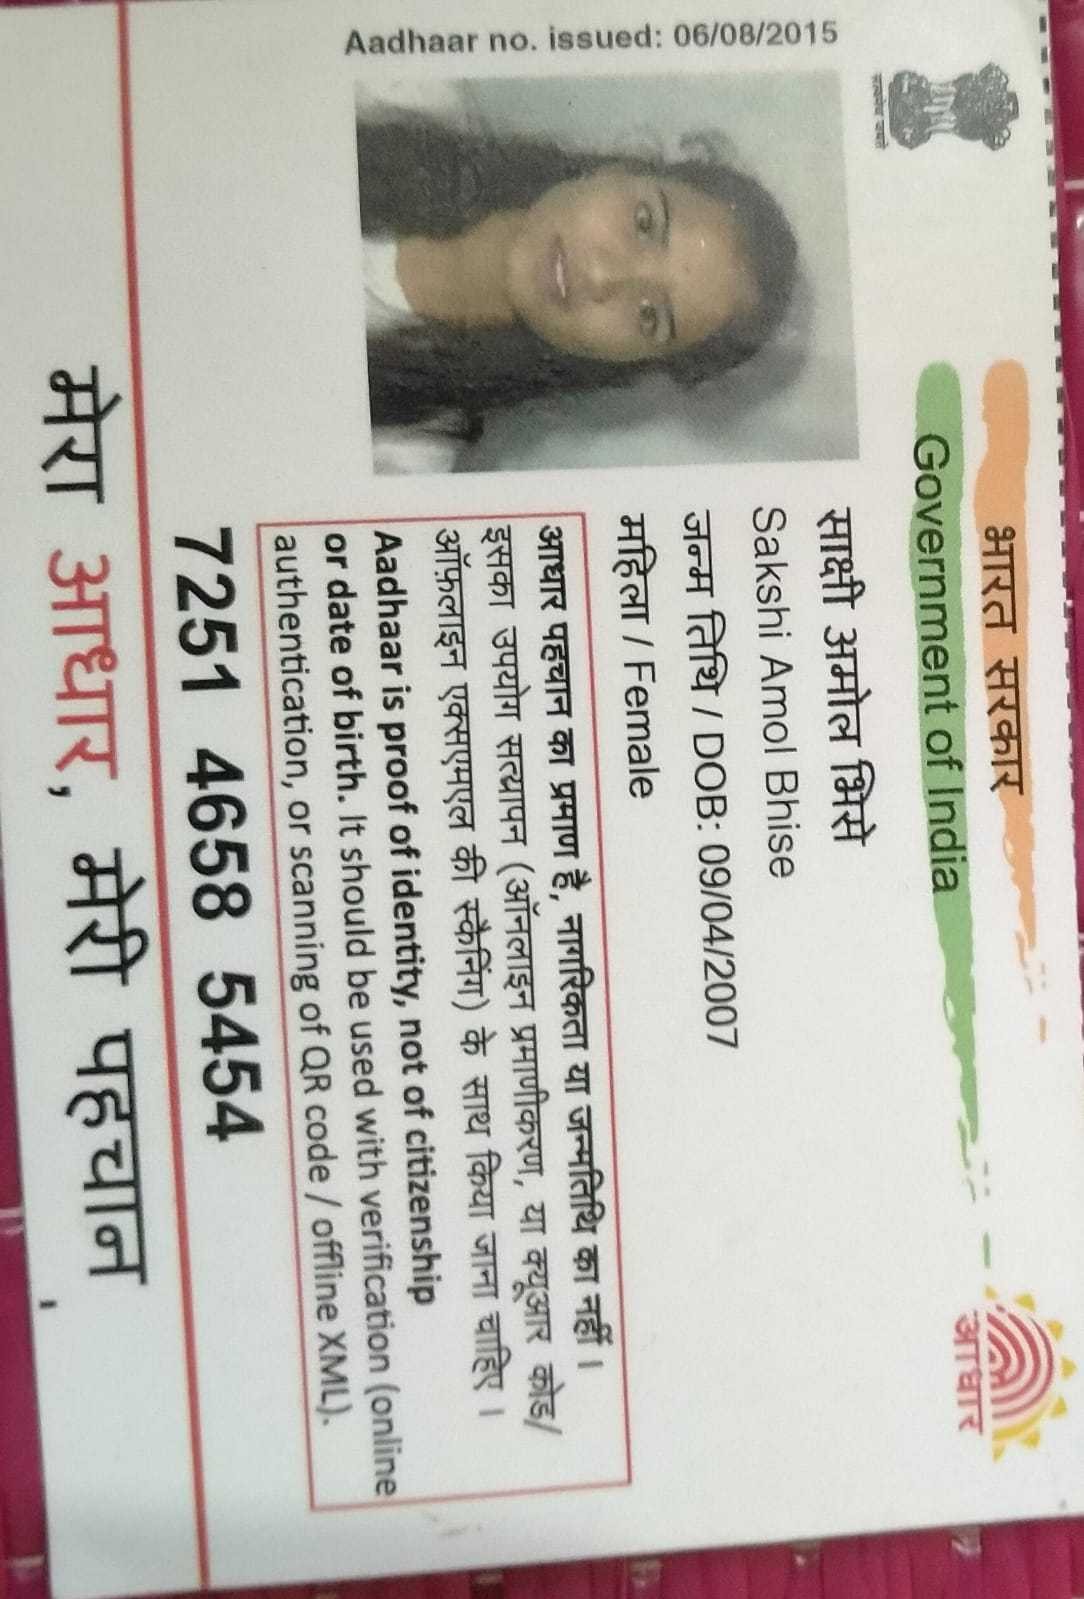 भारत सरकार
Government of India
आधार
Aadhaar no. issued: 06/08/2015
साक्षी अमोल भिसे
Sakshi Amol Bhise
जन्म तिथि / DOB: 09/04/2007
महिला / Female
आधार पहचान का प्रमाण है, नागरिकता या जन्मतिथि का नहीं ।
इसका उपयोग सत्यापन (ऑनलाइन प्रमाणीकरण, या क्यूआर कोड/
ऑफ़लाइन एक्सएमएल की स्कैनिंग) के साथ किया जाना चाहिए ।
Aadhaar is proof of identity, not of citizenship
or date of birth. It should be used with verification (online
authentication, or scanning of QR code / offline XML).
7251 4658 5454
मेरा आधार, मेरी पहचान